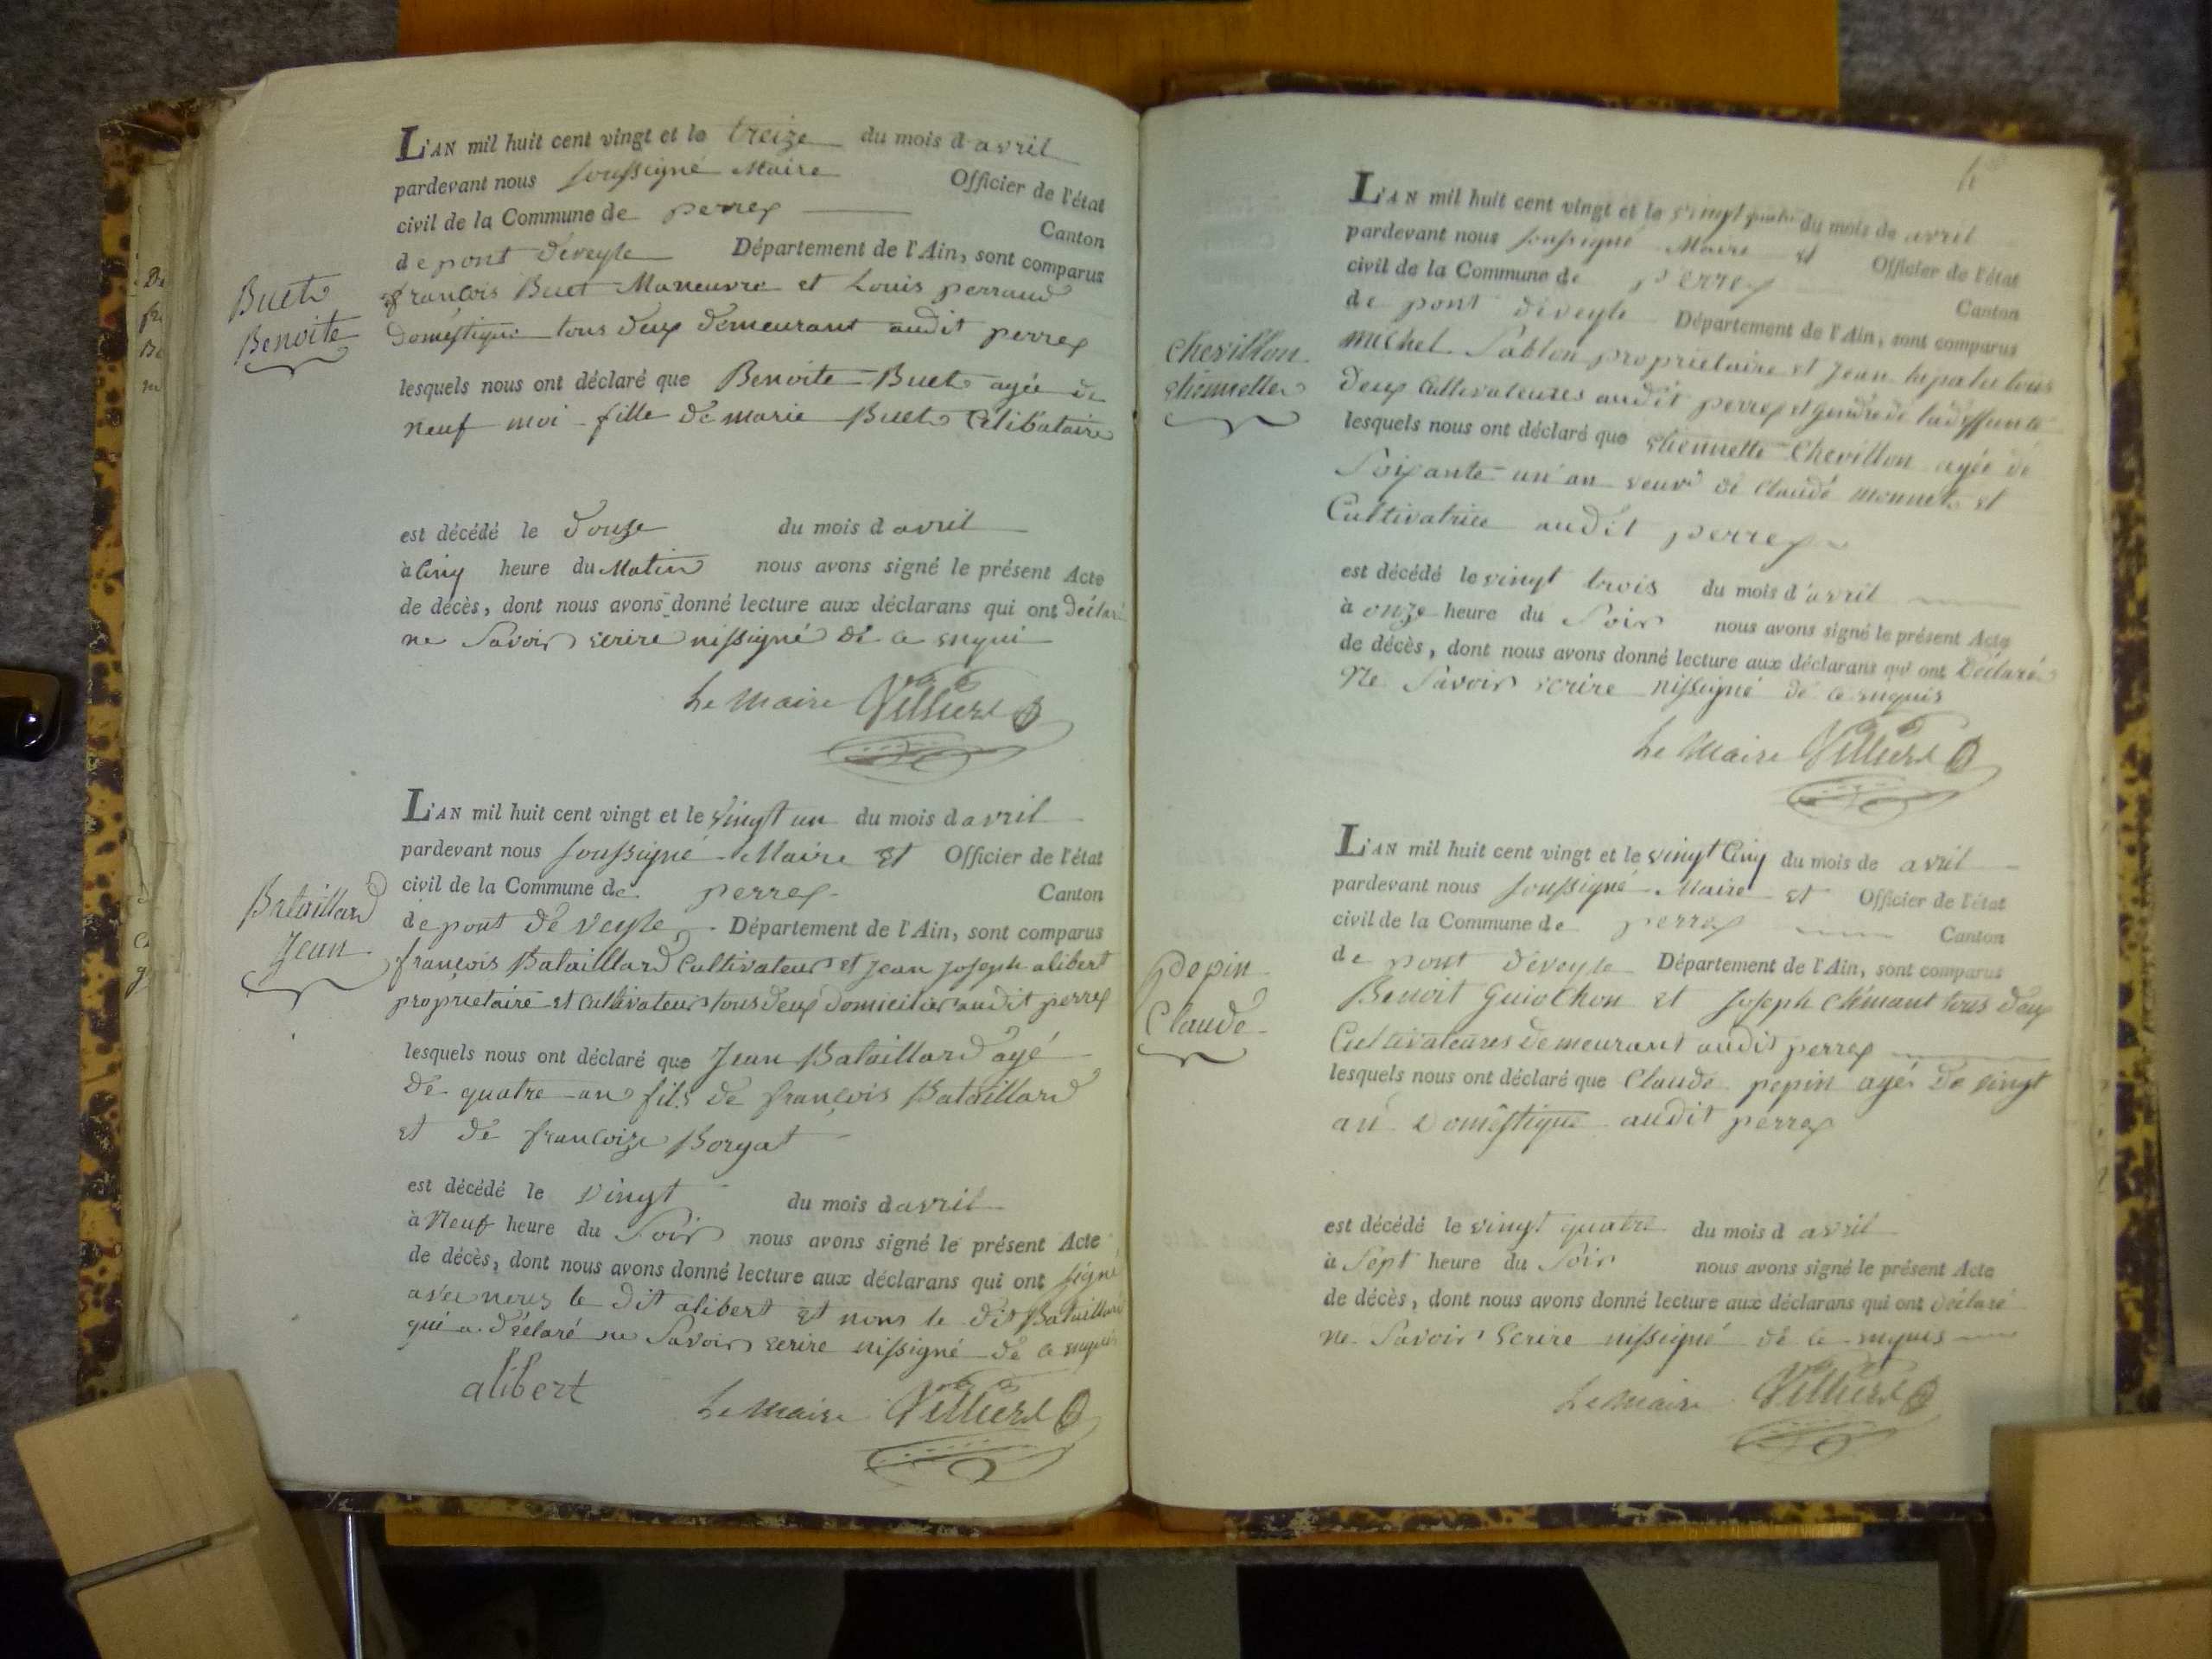 Buet
Benoite
L'AN mil huit cent vingt et le treize du mois d avril
pardevant nous soussigné Maire Officier de l'état
civil de la Commune de perrex Canton
de pont deveyle Département de l'Ain, sont comparus
françois Buet Maneuvre et Louis perraud
Domestique tous deux demeurant audit perrex
lesquels nous ont déclaré que Benoite Buet agée de
neuf moi fille de marie Buet Célibataire
est décédé le Douze du mois d avril
à Cinq heure du Matin nous avons signé le présent Acte
de décès, dont nous avons donné lecture aux déclarans qui ont Déclaré
ne Savoir écrire ni signé de ce enqui
Le Maire Villierd
Bataillard
Jean
L'AN mil huit cent vingt et le vingt un du mois d avril
pardevant nous soussigné Maire Et Officier de l'état
civil de la Commune de perrex Canton
de pont de veyle Département de l'Ain, sont comparus
françois Bataillard Cultivateur et Jean Joseph alibert
proprietaire et cultivateur tous deux domicilier audit perrex
lesquels nous ont déclaré que Jean Bataillard agé
de quatre an fils de françois Bataillard
et de françoize Borgat
est décédé le vingt du mois d avril
à Neuf heure du Soir nous avons signé le présent Acte
de décès, dont nous avons donné lecture aux déclarans qui ont signé
avec nous le dit alibert et nons le dit Bataillard
qui a déclaré ne Savoir écrire ni signé de ce enquis
alibert Le Maire Villierd
chevillon
etiennette
L'AN mil huit cent vingt et le vingt quatre du mois de avril
pardevant nous soussigné Maire et Officier de l'état
civil de la Commune de perrex Canton
de pont deveyle Département de l'Ain, sont comparus
Michel Sablon proprietaire et Jean lapalu tous
deux Cultivateures audit perrex et gendre de ladeffunte
lesquels nous ont déclaré que etiennette Chevillon agée de
Soixante un an veuve de Claude monnet et
Cultivatrice audit perrex
est décédé le vingt trois du mois d'avril
à onze heure du Soir nous avons signé le présent Acte
de décès, dont nous avons donné lecture aux déclarans qui ont Déclaré
Ne Savoir écrire ni signé de ce enquis
Le Maire Villierd
pepin
Claude
L'AN mil huit cent vingt et le vingt Cinq du mois de avril
pardevant nous soussigné Maire et Officier de l'état
civil de la Commune de perrex Canton
de pont deveyle Département de l'Ain, sont comparus
Benoit Guiochon et Joseph Clémant tous deux
Cultivateures demeurant audit perrex
lesquels nous ont déclaré que Claude pepin agé de vingt
an Domestique audit perrex
est décédé le vingt quatre du mois d avril
à Sept heure du Soir nous avons signé le présent Acte
de décès, dont nous avons donné lecture aux déclarans qui ont déclaré
ne Savoir Ecrire ni signé de ce enquis
Le Maire Villierd